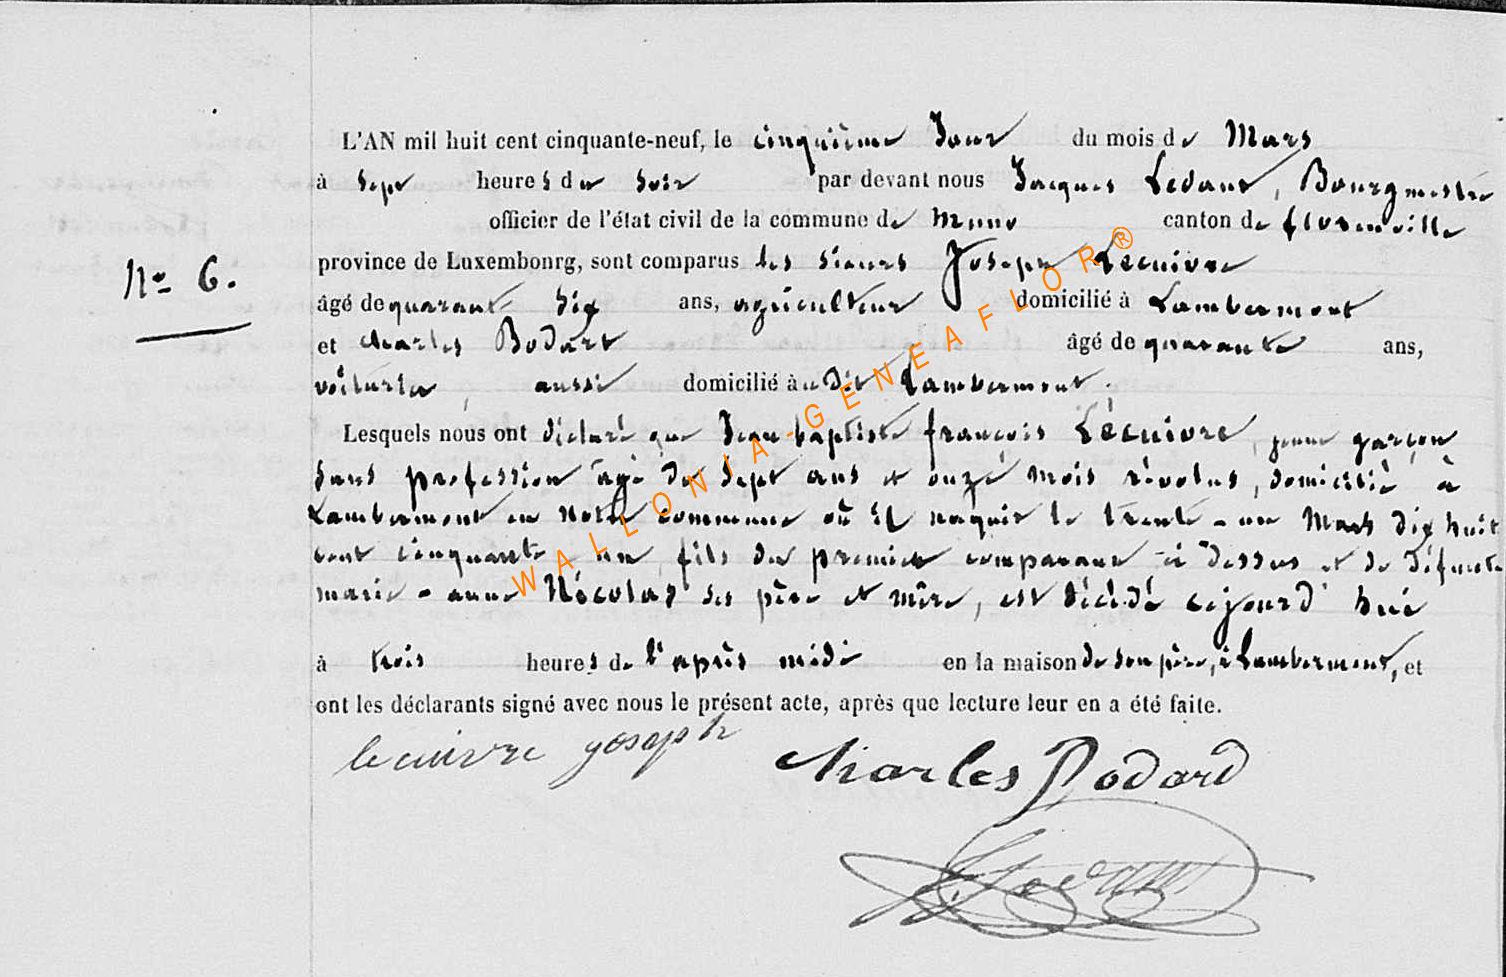 L'AN mil huit cent cinquante-neuf, le cinquième Jour du mois de Mars
à Sept heures du Soir par devant nous Jacques Ledant, Bourgmestre
officier de l'état civil de la commune de Muno canton de florenville
N° 6.
province de Luxembonrg, sont comparus les Sieurs Joseph Lecuivre
âgé de quarante Six ans, agriculteur domicilié à Lambermont
et charles Bodart âgé de quarante ans,
voiturier, aussi domicilié à dit Lambermont.
Lesquels nous ont déclaré que Jean baptiste françois Lécuivre, jeune garçon
Sans profession agé de Sept ans et onze mois révolus, domicilié à
Lambermont en Notre commune où il naquit le trente-un Mars dix huit
cent cinquante un, fils du premier comparant ci Dessus et de Défunte
marie-anne Nicolas ses père et mère, est Décédé cejourd'hui
à trois heures de l'après midi en la maison de son père, à Lambermont, et
ont les déclarants signé avec nous le présent acte, après que lecture leur en a été faite.
lecuivre joseph Charles Bodard
WALLONIA-GENEAFLOR®